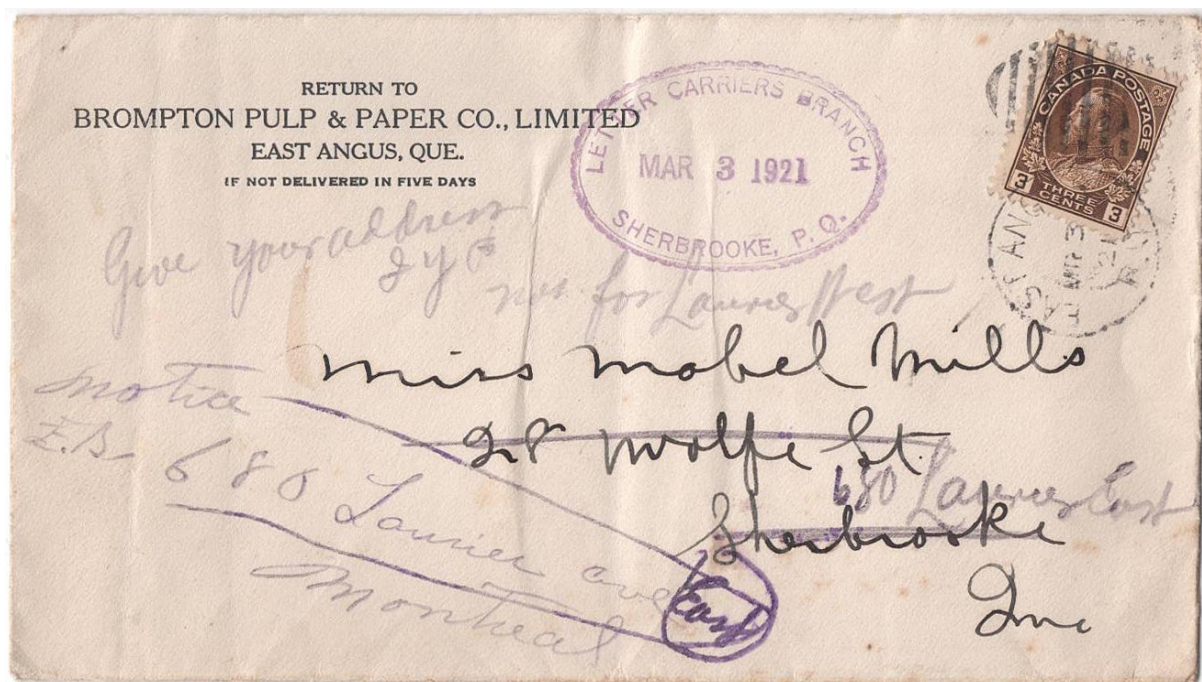 RETURN TO
BROMPTON PULP & PAPER CO., LIMITED
EAST ANGUS, QUE.
IF NOT DELIVERED IN FIVE DAYS
LETTER CARRIERS BRANCH
MAR 3 1921
SHERBROOKE, P. Q.
CANADA POSTAGE
3 THREE CENTS 3
EAST ANG
Give your address
not for Laurier West
Miss Mabel Mills
28 Wolfe St.
Sherbrooke
Que
notice
E.B.
680 Laurier East
680 Laurier ave
East
Montreal